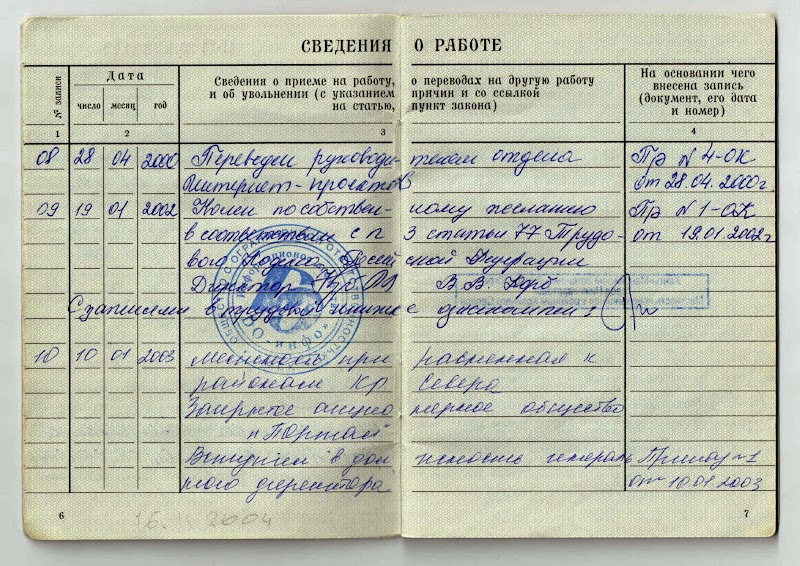 СВЕДЕНИЯ О РАБОТЕ
№ записи
Дата
число месяц год
Сведения о приеме на работу, о переводах на другую работу
и об увольнении (с указанием причин и со ссылкой
на статью, пункт закона)
На основании чего
внесена запись
(документ, его дата
и номер)
1 2 3 4
08 28 04 2000 Переведен руководителем отдела Пр N 4-ОК
Интернет-проектов от 28.04.2000г.
09 19 01 2002 Уволен по собственному желанию Пр N 1-ОК
в соответствии с п 3 статьи 77 Трудо- от 19.01.2002г
вого Кодекса Российской Федерации
Директор В В Корб
С записями в трудовой книжке ознакомлен:
10 10 01 2003 Местность приравненная к
районам Кр Севера
Закрытое акционерное общество
"Портал"
Вступил в должность генераль Приказ №1
ного директора от 10.01.2003
6 7
16. 11 2004